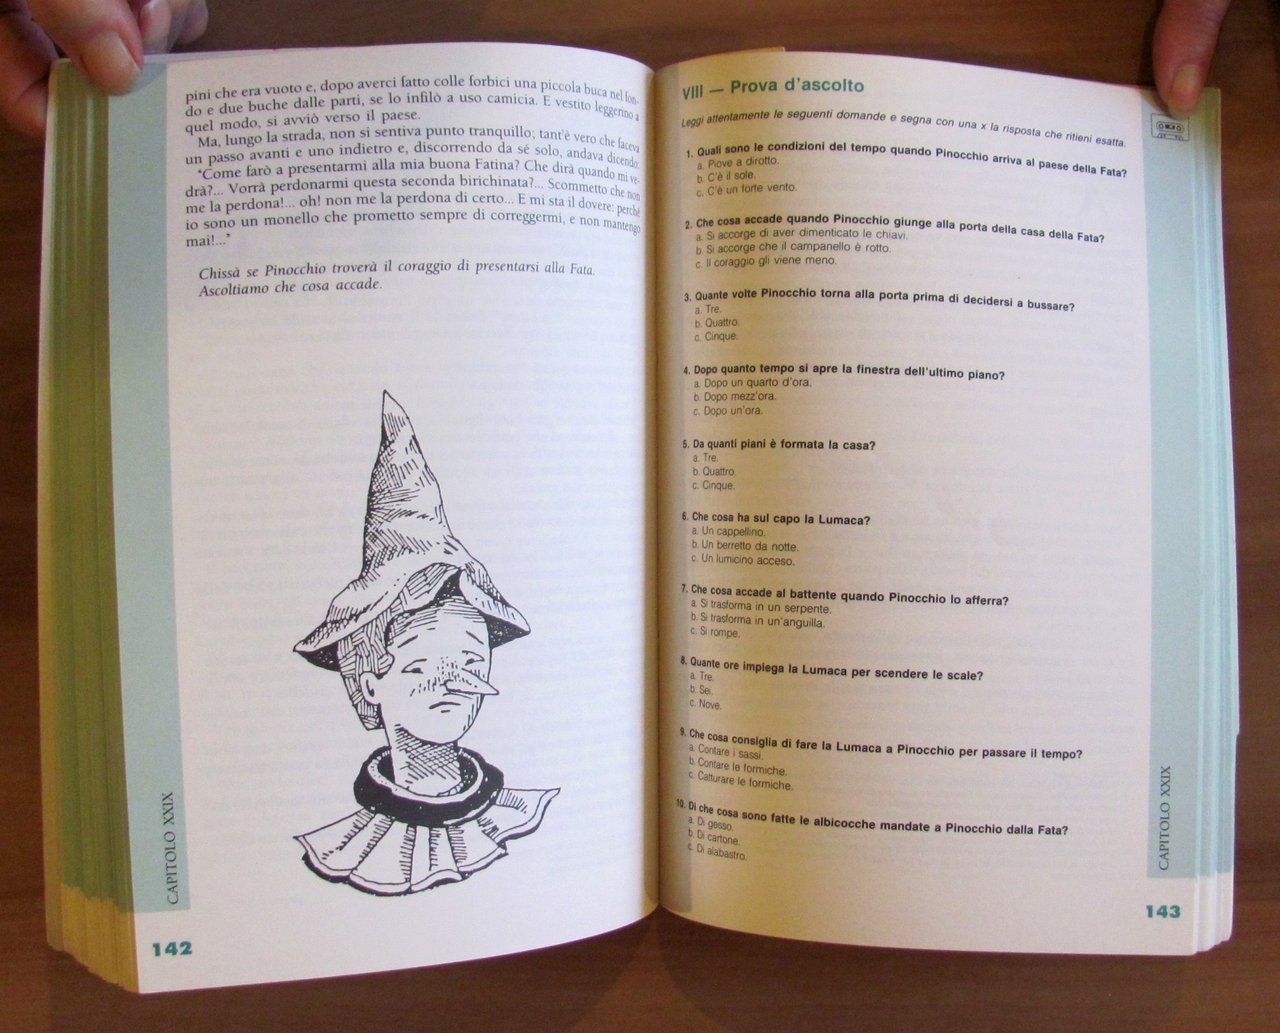 pini che era vuoto e, dopo averci fatto colle forbici una piccola buca nel fon-
do e due buche dalle parti, se lo infilò a uso camicia. E vestito leggerino a
quel modo, si avviò verso il paese.
Ma, lungo la strada, non si sentiva punto tranquillo; tant'è vero che faceva
un passo avanti e uno indietro e, discorrendo da sé solo, andava dicendo:
"Come farò a presentarmi alla mia buona Fatina? Che dirà quando mi ve-
drà?... Vorrà perdonarmi questa seconda birichinata?... Scommetto che non
me la perdona!... oh! non me la perdona di certo... E mi sta il dovere: perché
io sono un monello che prometto sempre di correggermi, e non mantengo
mai!..."
Chissà se Pinocchio troverà il coraggio di presentarsi alla Fata.
Ascoltiamo che cosa accade.
CAPITOLO XXIX
142
VIII — Prova d'ascolto
Leggi attentamente le seguenti domande e segna con una x la risposta che ritieni esatta.
1. Quali sono le condizioni del tempo quando Pinocchio arriva al paese della Fata?
a. Piove a dirotto.
b. C'è il sole.
c. C'è un forte vento.
2. Che cosa accade quando Pinocchio giunge alla porta della casa della Fata?
a. Si accorge di aver dimenticato le chiavi.
b. Si accorge che il campanello è rotto.
c. Il coraggio gli viene meno.
3. Quante volte Pinocchio torna alla porta prima di decidersi a bussare?
a. Tre.
b. Quattro.
c. Cinque.
4. Dopo quanto tempo si apre la finestra dell'ultimo piano?
a. Dopo un quarto d'ora.
b. Dopo mezz'ora.
c. Dopo un'ora.
5. Da quanti piani è formata la casa?
a. Tre.
b. Quattro.
c. Cinque.
6. Che cosa ha sul capo la Lumaca?
a. Un cappellino.
b. Un berretto da notte.
c. Un lumicino acceso.
7. Che cosa accade al battente quando Pinocchio lo afferra?
a. Si trasforma in un serpente.
b. Si trasforma in un'anguilla.
c. Si rompe.
8. Quante ore impiega la Lumaca per scendere le scale?
a. Tre.
b. Sei.
c. Nove.
9. Che cosa consiglia di fare la Lumaca a Pinocchio per passare il tempo?
a. Contare i sassi.
b. Contare le formiche.
c. Catturare le formiche.
10. Di che cosa sono fatte le albicocche mandate a Pinocchio dalla Fata?
a. Di gesso.
b. Di cartone.
c. Di alabastro.
CAPITOLO XXIX
143